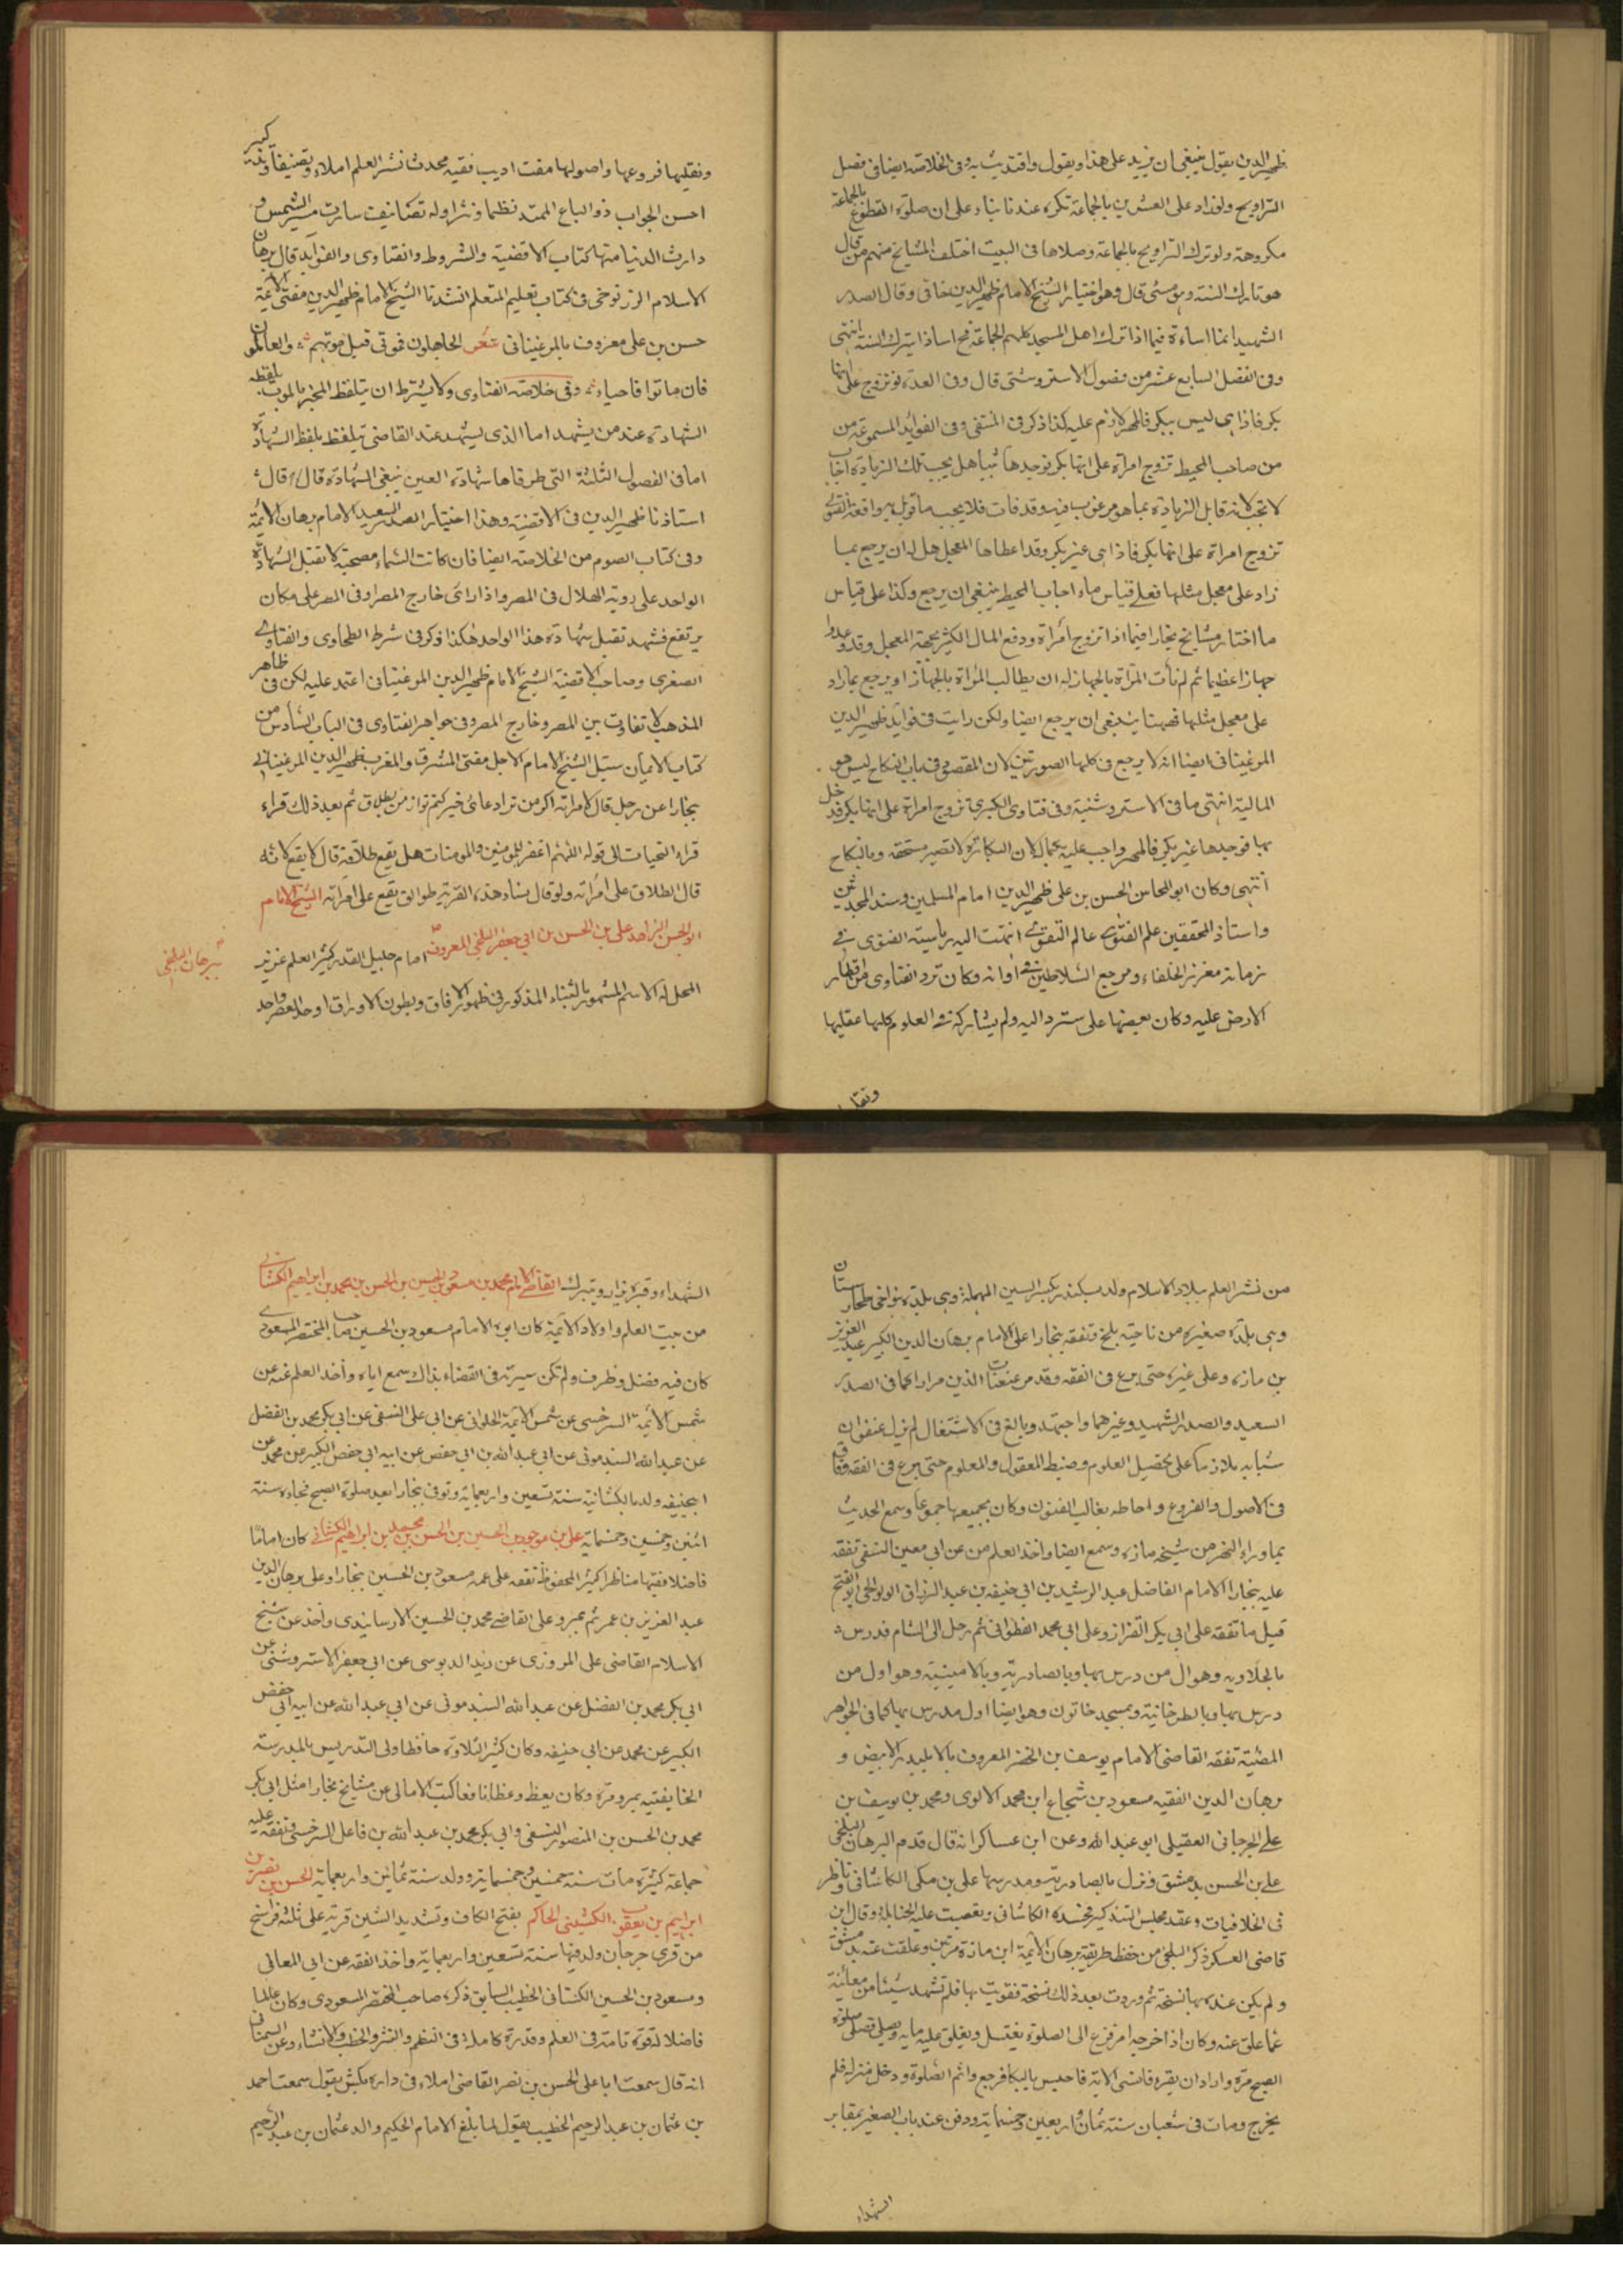 ظهير الدين يقول ينبغي ان يزيد على هذا ويقول واقتديت به وفى الخلاصة ايضا فى فصل
التراويح ولو زاد على العشرين بالجماعة تكره عندنا بناء على ان صلوة التطوع بالجماعة
مكروهة ولو ترك التراويح بالجماعة وصلاها فى البيت اختلف المشايخ منهم من قال
هو تارك السنة وهو مسئ قال وهو اختيار الشيخ الامام ظهير الدين وقال الصدر
الشهيد انما اساءة فيما اذا ترك اهل المسجد كلهم الجماعة فح اساؤا بترك السنة انتهى
وفى الفصل السابع عشر من فصول الاستروشنى قال وفى العدة لو تزوج على انها
بكر فاذا هى ليس ببكر فالمهر لازم عليه كذا ذكر فى المنتقى وفى الفوائد المسموعة من
من صاحب المحيط تزوج امراة على انها بكر فوجدها ثيبا هل يجب تلك الزيادة اجاب
لا تجب لانه قابل الزيادة بما هو مرغوب فيه وقد فات فلا يجب ما قوبل به واقعة الفتوى
تزوج امراة على انها بكر فاذا هى غير بكر وقد اعطاها المعجل هل له ان يرجع بما
زاد على معجل مثلها فعلى قياس ما اجاب المحيط ينبغى ان يرجع وكذا على قياس
ما اختار مشايخ بخارا فيما اذا تزوج امراة ودفع المال الكثير بجهة المعجل وقد وعدوا
جهازا عظيما ثم لم تأت المرأة بالجهاز له ان يطالب المرأة بالجهاز او يرجع بما زاد
على معجل مثلها فههنا ينبغى ان يرجع ايضا ولكن رايت فى فوايد ظهير الدين
المرغينانى ايضا انه لا يرجع فى كلتا الصورتين لان المقصود فى باب النكاح ليس هو
المالية انتهى ما فى الاستروشنية وفى فتاوى الكبرى تزوج امراة على انها بكر فدخل
بها فوجدها غير بكر فالمهر واجب عليه بكماله لان البكارة لا تصير مستحقة بالنكاح
انتهى وكان ابو المحاسن الحسن بن على ظهير الدين امام المسلمين وسند المحدثين
واستاذ المحققين علم الفتوى عالم التقوى انتهت اليه رياسة الفتوى فى
زمانه معزز الخلفاء ومرجع السلاطين فى اوانه وكان ترد الفتاوى من اقطار
الارض عليه وكان بعضها على ستر داليه ولم يشاركه فى العلوم كلها عقليها
ونقليها
ونقليها فروعها واصولها مفت اديب فقيه محدث نشر العلم املاء وتصنيفا وتذكير
احسن الجواب ذو الباع الممتد نظما ونثرا وله تصانيف سارت مسير الشمس و
دارت الدنيا منها كتاب الاقضية والشروط والفتاوى والفوايد قال برهان
الاسلام الزرنوخى فى كتاب تعليم المتعلم انشدنا الشيخ الامام ظهير الدين مفتى الائمة
حسن بن على معروف بالمرغينانى شعر الجاهلون فموتى قبل موتهم والعالمون
فان ماتوا فاحياء وفى خلاصة الفتاوى ولا يشترط ان يتلفظ المخبر بالموت بلفظه
الشهادة عند من يشهد اما الذى يشهد عند القاضى يتلفظ بلفظ الشهادة
اما فى الفصول الثلثة التى طرفاها شهادة العين ينبغى الشهادة قال قال
استاذنا ظهير الدين فى الاقضية وهذا اختيار الصدر السعيد الامام برهان الائمة
وفى كتاب الصوم من الخلاصة ايضا فان كانت السماء مصحية لا تقبل الشهادة
الواحد على روية الهلال فى المصر واذا راى خارج المصر او فى المصر على مكان
يرتفع فشهد تقبل شهادة هذا الواحد هكذا ذكر فى شرط الطحاوى والفتاوى
الصغرى وصاحب الاقضية الشيخ الامام ظهير الدين المرغينانى اعتمد عليه لكن فى ظاهر
المذهب لا تفاوت بين المصر وخارج المصر وفى جواهر الفتاوى فى الباب السادس من
كتاب الايمان سئل الشيخ الامام الاجل مفتى المشرق والمغرب ظهير الدين المرغينانى
بخارا عن رجل قال لامراته اكر من ترا دعائ خير كنم تو از من بطلاق ثم بعد ذلك قراء
قراء التحيات الى قوله اللهم اغفر للمؤمنين والمومنات هل يقع طلاقه قال لا يقع لانه
قال الطلاق على امرأته ولو قال نساء هذه القرية طوالق يقع على امراته الشيخ الامام
ابو الحسن الزاهد على بن الحسن بن ابى جعفر البلخى المعروف امام جليل القدر كثير العلم عزيز
ببرهان البلخى
المحل له الاسم المشهور بالثناء المذكور فى ظهور الافاق وبطون الاوراق اوحد العصر واحد
من نشر العلم ببلاد الاسلام ولد بسكندر بكسر السين المهملة وهى بلدة بنواحى طخارستان
وهى بلدة صغيرة من ناحية بلخ وتفقه ببخارا على الامام برهان الدين الكبير عبد العزيز
بن مازه وعلى غيره حتى برع فى الفقه وقد مر عنعنات الذين مرارا كما فى الصدر
السعيد والصدر الشهيد وغيرهما واجتهد وبالغ فى الاشتغال لم يزل عنفوان
شبابه ملازما على تحصيل العلوم وضبط المعقول والمعلوم حتى برع فى الفقه وفاق
فى الاصول والفروع واحاطه بغالب الفنون وكان بجميعها جموعا وسمع الحديث
بما وراء النهر من شيخه مازه وسمع ايضا واخذ العلم من عن ابى معين النسفى تفقه
عليه ببخارا الامام الفاضل عبد الرشيد بن ابى حنيفه بن عبد الرزاق الولوالجى ابو الفتح
قبل ما تفقه على ابى بكر القزاز وعلى ابى محمد القطوانى ثم رحل الى الشام فدرس
بالحلاويه وهو اول من درس بها وبالصادرية وبالامينية وهو اول من
درس بها وبالطرخانية وبمسجد خاتون وهو ايضا اول مدرس بها كما فى الجواهر
المضية تفقه القاضى الامام يوسف بن الخضر المعروف الابيض و
برهان الدين الفقيه مسعود بن شجاع ابن محمد الاموى ومحمد بن يوسف بن
على الجرجانى العقيلى ابو عبد الله وعن ابن عساكر انه قال قدم البرهان البلخى
على بن الحسن بدمشق ونزل بالصادرية ومدرسها على بن مكى الكاشانى وناظر
فى الخلافيات وعقد مجلس التذكير فحسده الكاشانى وتعصبت عليه الحنابلة وقال ابن
قاضى العسكر ذكر البلخى من حفظ طريقة برهان الائمة ابن مازة مرتين وعلقت عنه بدمشق
ولم يكن عنده بها نسخة ثم وردت بعد ذلك نسخة فقوبلت بها فلم تشهد شيئا من معاينة
عما علق عنه وكان اذا خرجه امر فزع الى الصلوة يغتسل ويغلق عليه بابه ويصلى فصلى صلوة
الصبح مرة واراد ان يقره فانسى الاية فاحبس بالبكا فرجع واتم الصلوة ودخل منزله فلم
يخرج ومات فى شعبان سنة ثمان واربعين وخمسماية ودفن عند باب الصغير بمقابر
الشهداء
الشهداء وقبره يزار ويتبرك القاضى الامام محمد بن مسعود بن الحسين بن الحسن بن محمد بن ابراهيم الكشانى
من بيت العلم واولاد الائمة كان ابوه الامام مسعود بن الحسين صاحب المختصر المسعودى
كان فيه فضل وظرف ولم تكن سيرته فى القضاء بذاك سمع اباه واخذ العلم عنه عن
شمس الائمة السرخسى عن شمس الائمة الحلوانى عن ابى على النسفى عن ابى بكر محمد بن الفضل
عن عبد الله السبذمونى عن ابى عبد الله بن ابى حفص عن ابيه ابى حفص الكبير عن محمد عن
ابيحنيفه ولد بالكشانية سنة تسعين واربعماية وتوفى بخارا بعد صلوة الصبح فجاءة سنة
اثنين وخمسين وخمسماية على بن مودود بن الحسين بن الحسن بن محمد بن ابراهيم الكشانى كان اماما
فاضلا فقيها مناظرا كثير المحفوظ تفقه على عمه مسعود بن الحسين ببخارا وعلى برهان الدين
عبد العزيز بن عمر ثم بمرو على القاضى محمد بن الحسين الارسابندى واخذ عن شيخ
الاسلام القاضى على المروزى عن زيد الدبوسى عن ابى جعفر الاستروشنى عن
ابى بكر محمد بن الفضل عن عبد الله السبذمونى عن ابى عبد الله عن ابيه ابى حفص
الكبير عن محمد عن ابى حنيفه وكان كثير التلاوة حافظا ولى التدريس بالمدرسة
الخاقيه بمرو مرة وكان يعظ وعظا نافعا كتب الامالى عن مشايخ بخارا مثل ابى بكر
محمد بن الحسن بن المنصور النسفى وابى بكر محمد بن عبد الله بن فاعل السرخسى وتفقه عليه
جماعة كثيرة مات سنة خمسين وخمسماية وولد سنة ثمانين واربعماية الحسن بن نصر بن
ابراهيم بن يعقوب الكشينى الحاكم بفتح الكاف وتشديد الشين قرية على ثلثة فراسخ
من قرى جرجان ولد فيها سنة تسعين واربعماية واخذ الفقه عن ابى المعالى
ومسعود بن الحسين الكشانى الخطيب السابق ذكره صاحب المختصر المسعودى وكان عالما
فاضلا له قوة تامة فى العلم وقدرة كاملة فى النظم والنثر والخطب والانشاء وعن السمعانى
انه قال سمعت ابا على الحسن بن نصر القاضى املاء فى داره بكش يقول سمعت احمد
بن عثمان بن عبد الرحيم الخطيب يقول لما بلغ الامام الحكيم والد عثمان بن عبد الرحيم